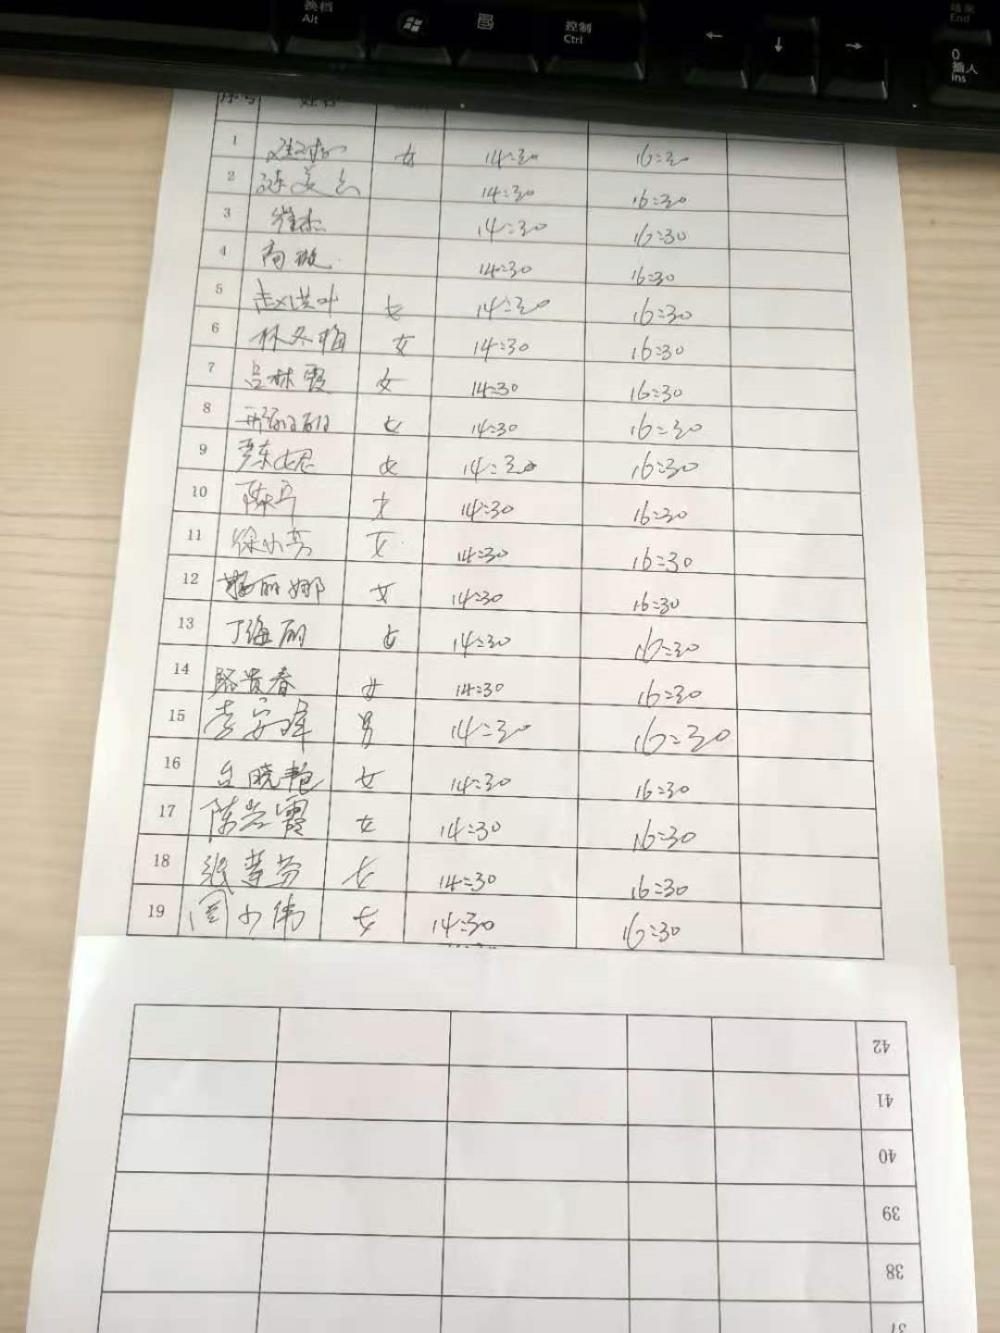 换档 Alt
控制 Ctrl
← ↓ →
结束 End
0 插入 Ins
序号 姓名
1 女 14:30 16:30
2 陈 14:30 16:30
3 崔杰 14:30 16:30
4 高 14:30 16:30
5 赵洪叶 女 14:30 16:30
6 林冬梅 女 14:30 16:30
7 吕林霞 女 14:30 16:30
8 女 14:30 16:30
9 女 14:30 16:30
10 陈 14:30 16:30
11 徐小芳 女 14:30 16:30
12 丽娜 女 14:30 16:30
13 丁海丽 女 14:30 16:30
14 骆贵春 女 14:30 16:30
15 李安峰 男 14:30 16:30
16 晓艳 女 14:30 16:30
17 陈 霞 女 14:30 16:30
18 张 女 14:30 16:30
19 周小伟 女 14:30 16:30
42
41
40
39
38
37